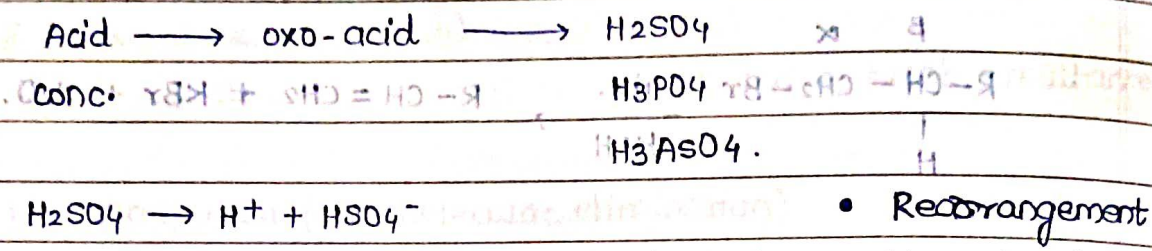 Acid ⟶ oxo-acid ⟶ H2SO4
Conc. H3PO4
H3AsO4.
H2SO4 → H+ + HSO4-
• Rearrangement